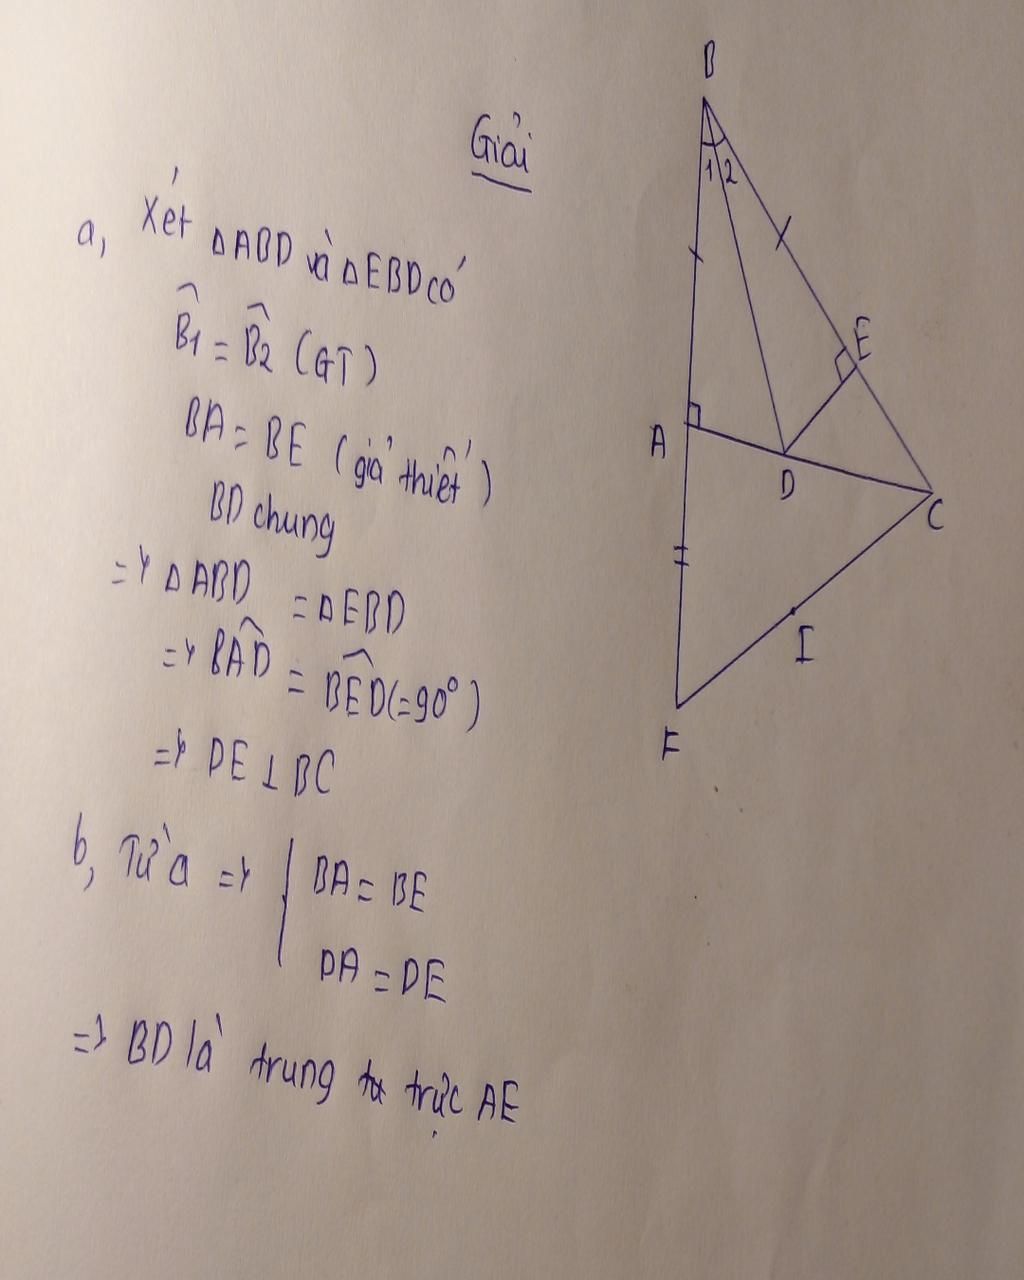 Giải
a, Xét △ABD và △EBD có
B̂1 = B̂2 (GT)
BA = BE (giả thiết)
BD chung
=> △ABD = △EBD
=> BÂD = BÊD (=90°)
=> DE ⊥ BC
b, Từ a => { BA = BE
DA = DE
=> BD là trung trực AE
B
1 2
E
A
D
C
I
F